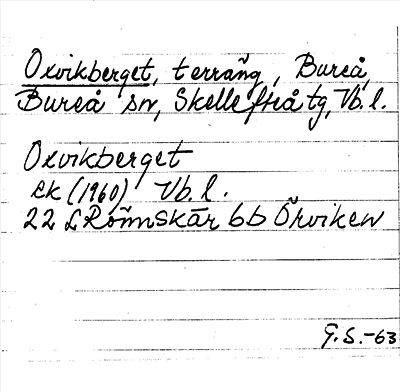 Oxvikberget, terräng, Bureå,
Bureå sn, Skellefteå tg, Vb.l.
Oxvikberget
Ek (1960) Vb.l.
22 L Rönnskär 6b Örviken
G.S.-63